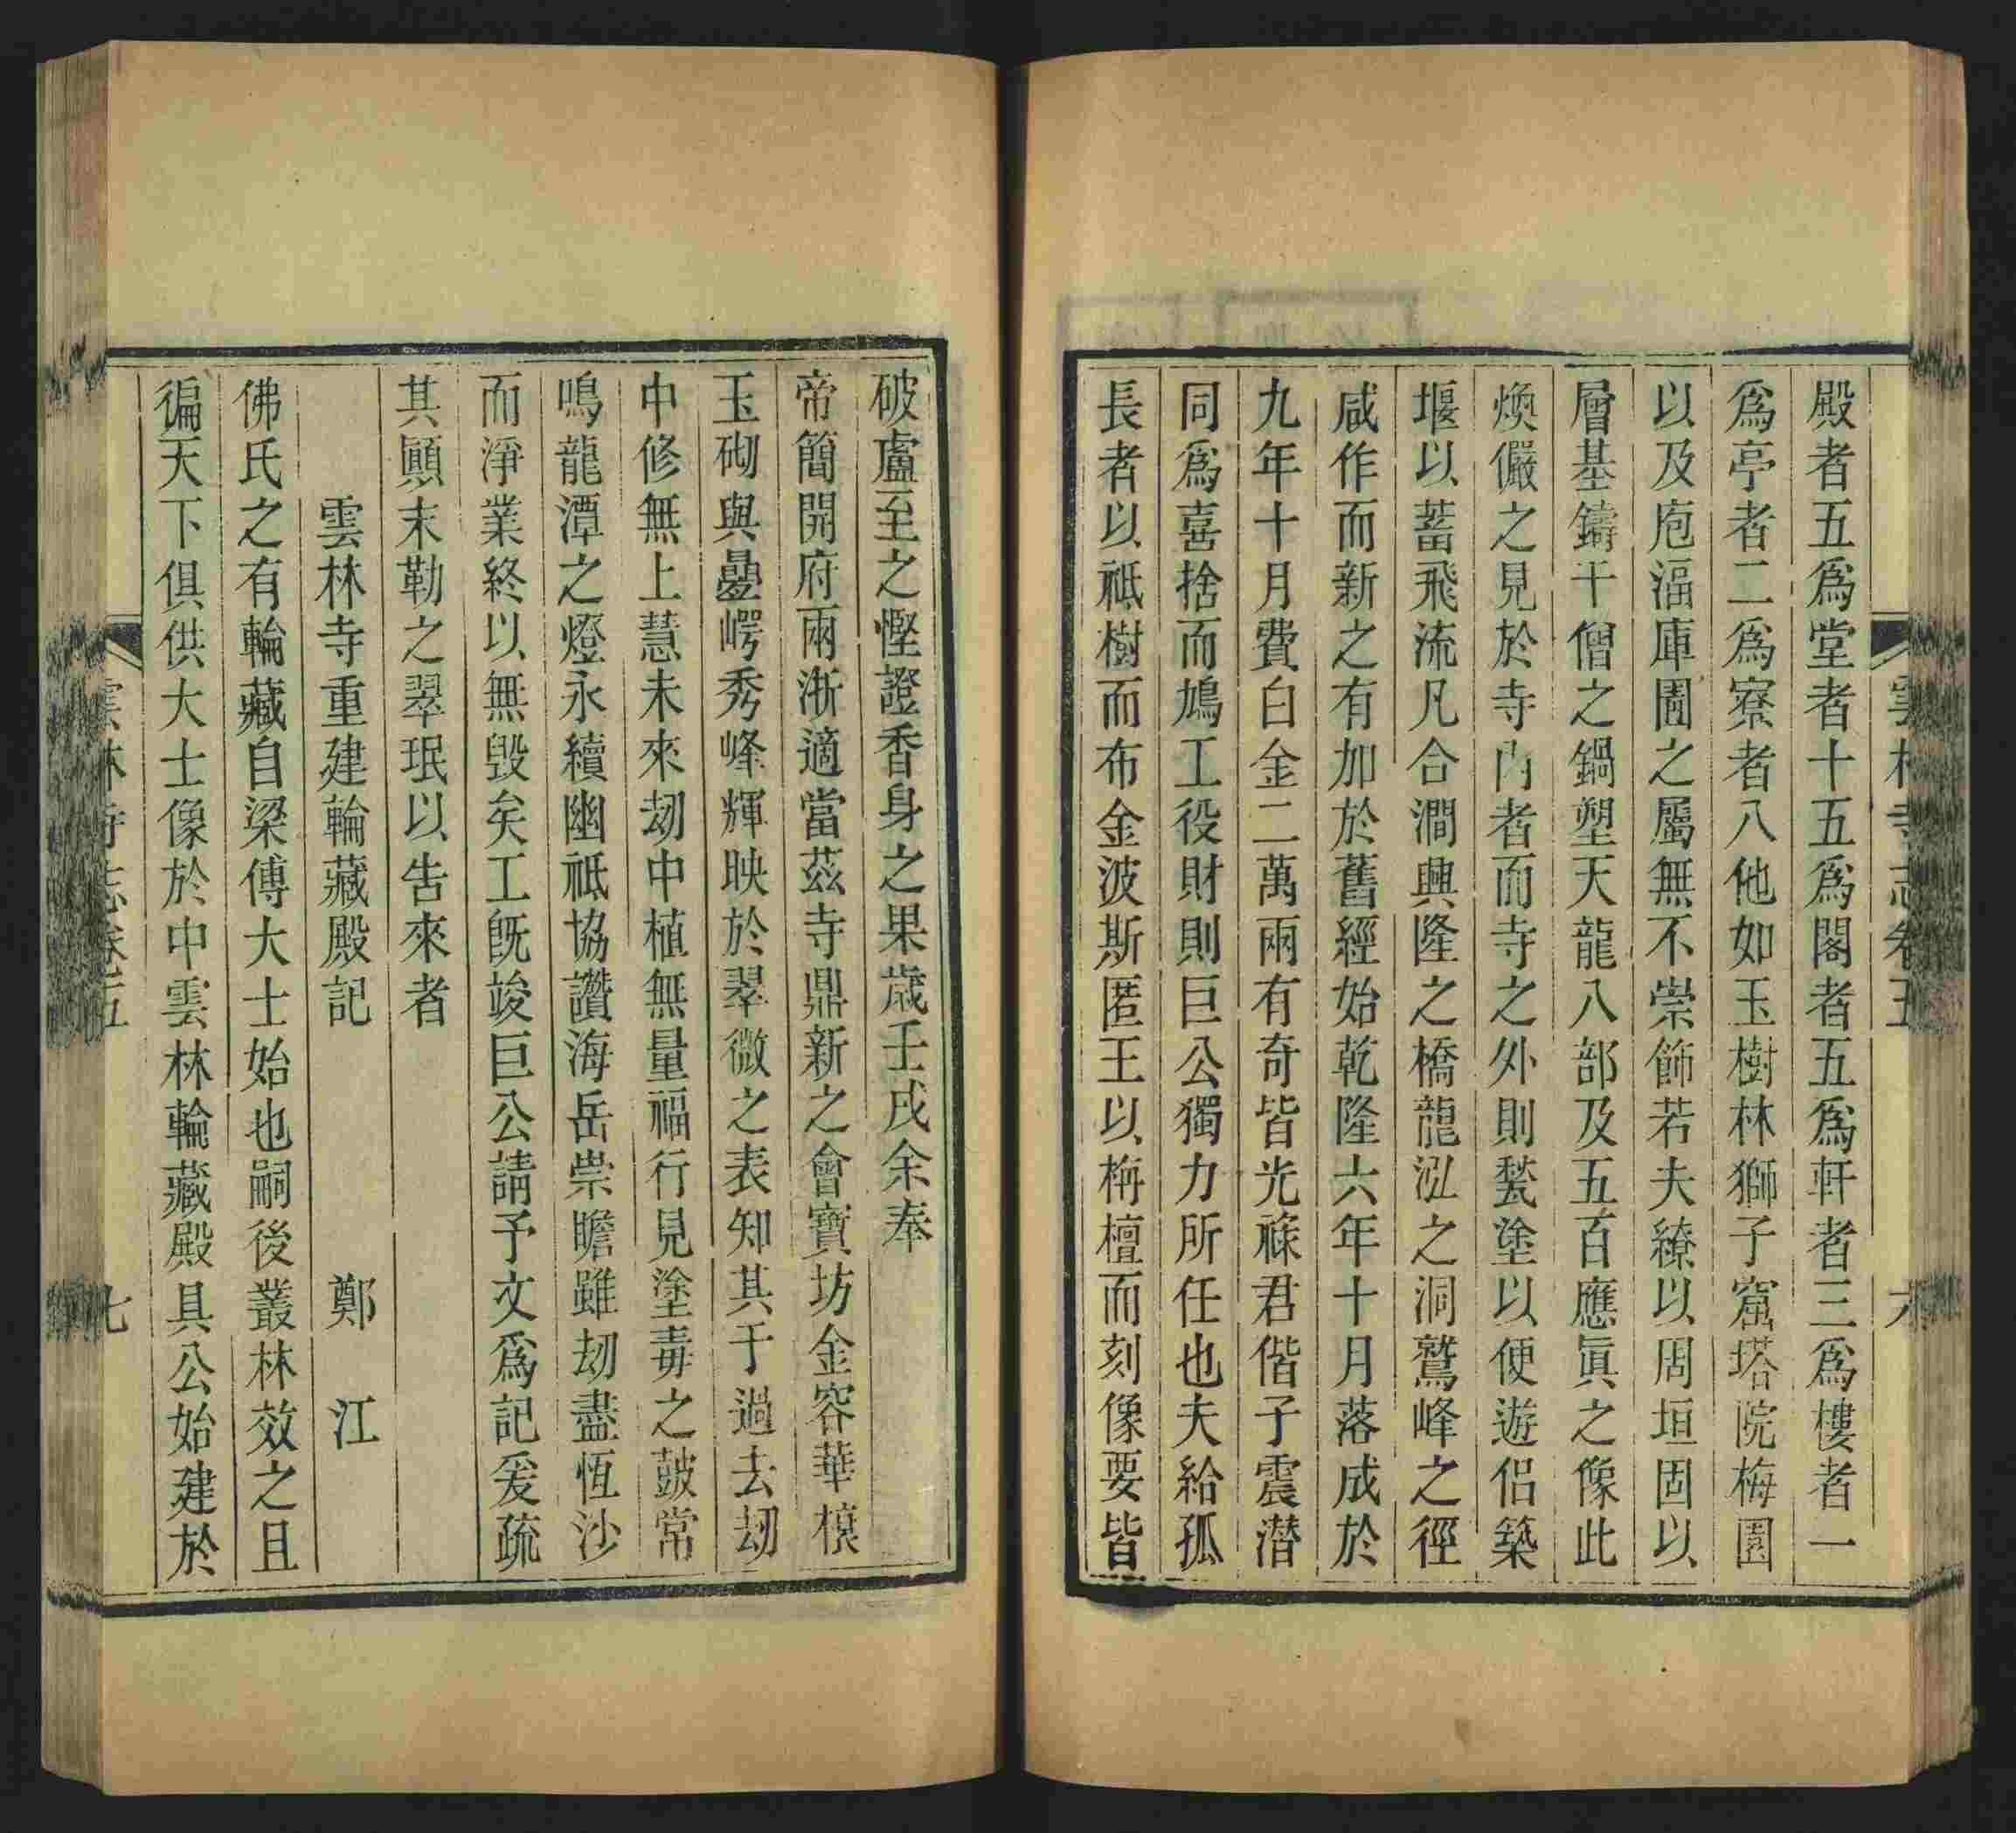 殿者五爲堂者十五爲閣者五爲軒者三爲樓者一
爲亭者二爲寮者八他如玉樹林獅子窟塔院梅園
以及庖湢庫圊之屬無不崇飾若夫繚以周垣固以
層基鑄千僧之鍋塑天龍八部及五百應眞之像此
煥儼之見於寺內者而寺之外則甃塗以便遊侶築
堰以蓄飛流凡合澗興隆之橋龍泓之洞鷲峰之徑
咸作而新之有加於舊經始乾隆六年十月落成於
九年十月費白金二萬兩有奇皆光祿君偕子震潜
同爲喜捨而鳩工役財則巨公獨力所任也夫給孤
長者以祗樹而布金波斯匿王以栴檀而刻像要皆
破慮至之慳證香身之果歲壬戌余奉
帝簡開府兩浙適當茲寺鼎新之會寶坊金容華榱
玉砌與疊崿秀峰輝映於翠微之表知其于過去刼
中修無上慧未來刼中植無量福行見塗毒之皷常
鳴龍潭之燈永續幽祗協讚海岳崇瞻雖刼盡恆沙
而淨業終以無毀矣工既竣巨公請予文爲記爰疏
其顚末勒之翠珉以告來者
雲林寺重建輪藏殿記 鄭江
佛氏之有輪藏自梁傅大士始也嗣後叢林效之且
徧天下俱供大士像於中雲林輪藏殿具公始建於
雲林寺志卷五 六
雲林寺志卷五 七